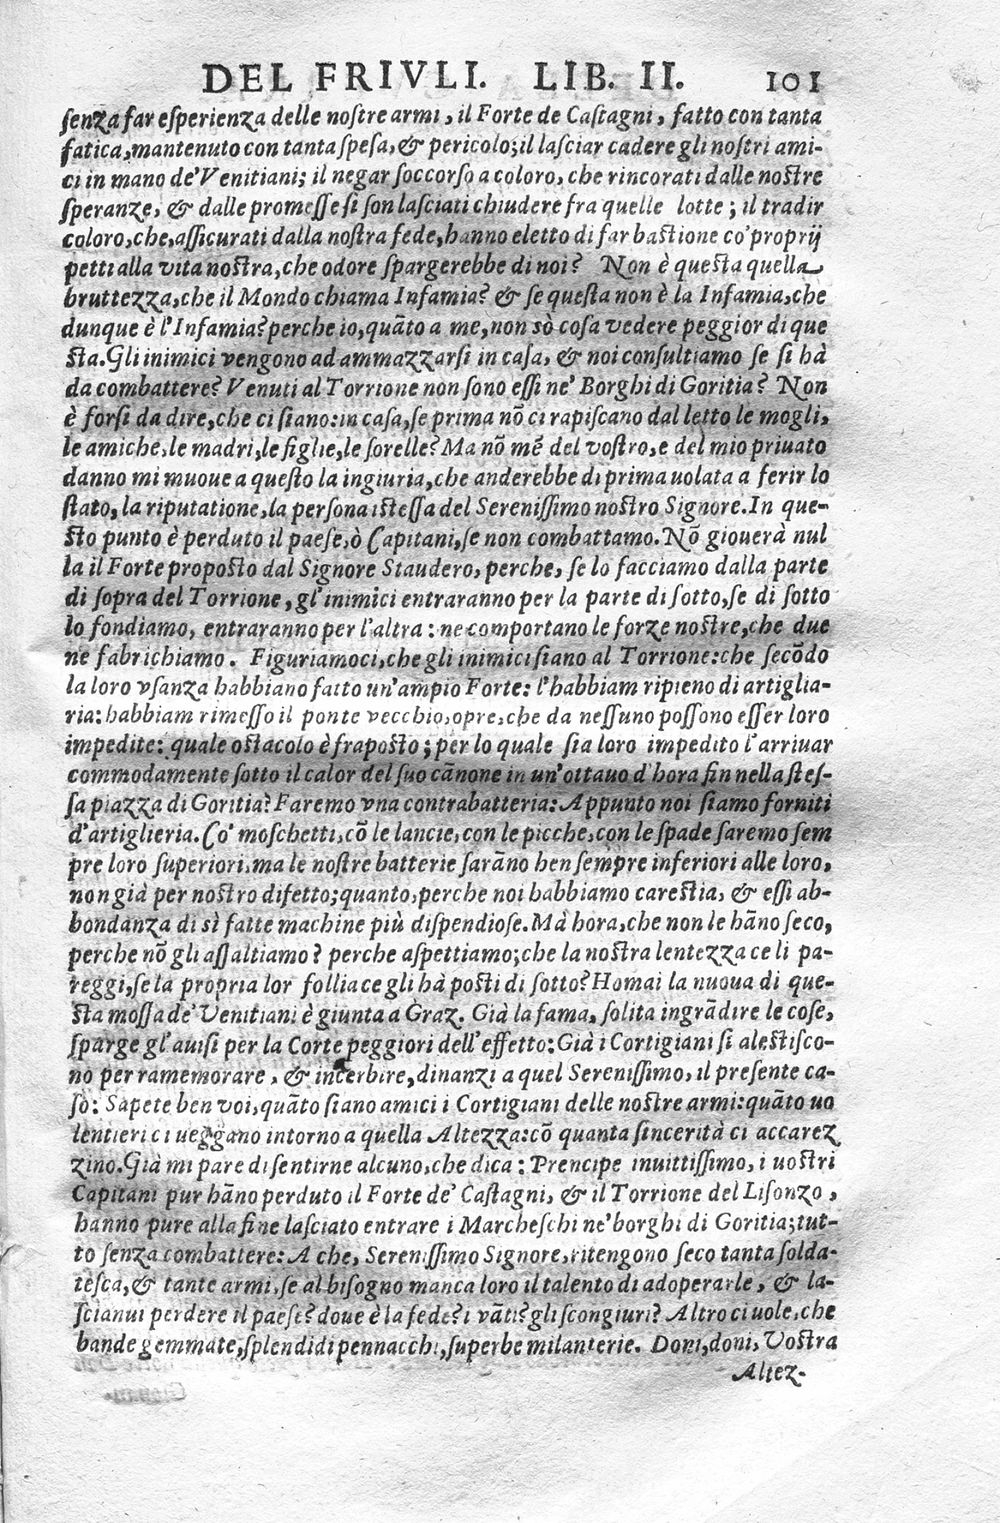 DEL FRIVLI. LIB. II. 101
ſenza far eſperienza delle noſtre armi, il Forte de Caſtagni, fatto con tanta
fatica, mantenuto con tanta ſpeſa, & pericolo; il laſciar cadere gli noſtri ami-
ci in mano de' Venitiani; il negar ſoccorſo a coloro, che rincorati dalle noſtre
ſperanze, & dalle promeſſe ſi ſon laſciati chiudere fra quelle lotte; il tradir
coloro, che, aſſicurati dalla noſtra fede, hanno eletto di far baſtione co' proprij
petti alla vita noſtra, che odore ſpargerebbe di noi? Non è queſta quella
bruttezza, che il Mondo chiama Infamia? & ſe queſta non è la Infamia, che
dunque è l'Infamia? perche io, quāto a me, non sò coſa vedere peggior di que
ſta. Gli inimici vengono ad ammazzarſi in caſa, & noi conſultiamo ſe ſi hà
da combattere? Venuti al Torrione non ſono eſſi ne' Borghi di Goritia? Non
è forſi da dire, che ci ſiano: in caſa, ſe prima nō ci rapiſcano dal letto le mogli,
le amiche, le madri, le figlie, le ſorelle? Ma nō mē del voſtro, e del mio priuato
danno mi muoue a queſto la ingiuria, che anderebbe di prima uolata a ferir lo
ſtato, la riputatione, la perſona iſteſſa del Sereniſſimo noſtro Signore. In que-
ſto punto è perduto il paeſe, ò Capitani, ſe non combattamo. Nō giouerà nul
la il Forte propoſto dal Signore Staudero, perche, ſe lo facciamo dalla parte
di ſopra del Torrione, gl'inimici entraranno per la parte di ſotto, ſe di ſotto
lo fondiamo, entraranno per l'altra: ne comportano le forze noſtre, che due
ne fabrichiamo. Figuriamoci, che gli inimici ſiano al Torrione: che ſecōdo
la loro vſanza habbiano fatto un'ampio Forte: l'habbiam ripieno di artiglia-
ria: habbiam rimeſſo il ponte vecchio, opre, che da neſſuno poſſono eſſer loro
impedite: quale oſtacolo è frapoſto; per lo quale ſia loro impedito l'arriuar
commodamente ſotto il calor del ſuo cānone in un'ottauo d'hora fin nella ſteſ-
ſa piazza di Goritia? Faremo vna contrabatteria: Appunto noi ſiamo forniti
d'artiglieria. Co' moſchetti, cō le lancie, con le picche, con le ſpade ſaremo ſem
pre loro ſuperiori, ma le noſtre batterie ſarāno ben ſempre inferiori alle loro,
non già per noſtro difetto; quanto, perche noi habbiamo careſtia, & eſſi ab-
bondanza di sì fatte machine più diſpendioſe. Mà hora, che non le hāno ſeco,
perche nō gli aſſaltiamo? perche aſpettiamo; che la noſtra lentezza ce li pa-
reggi, ſe la propria lor follia ce gli hà poſti di ſotto? Homai la nuoua di que-
ſta moſſa de' Venitiani è giunta a Graz. Già la fama, ſolita ingrādire le coſe,
ſparge gl'auiſi per la Corte peggiori dell'effetto: Già i Cortigiani ſi aleſtiſco-
no per ramemorare, & incerbire, dinanzi a quel Sereniſſimo, il preſente ca-
ſo: Sapete ben voi, quāto ſiano amici i Cortigiani delle noſtre armi: quāto uo
lentieri ci ueggano intorno a quella Altezza: cō quanta ſincerità ci accarez
zino. Già mi pare di ſentirne alcuno, che dica: Prencipe inuittiſſimo, i uoſtri
Capitani pur hāno perduto il Forte de' Caſtagni, & il Torrione del Liſonzo,
hanno pure alla fine laſciato entrare i Marcheſchi ne' borghi di Goritia; tut-
to ſenza combattere: A che, Sereniſſimo Signore, ritengono ſeco tanta ſolda-
teſca, & tante armi, ſe al biſogno manca loro il talento di adoperarle, & la-
ſcianui perdere il paeſe? doue è la fede? i vāti? gli ſcongiuri? Altro ci uole, che
bande gemmate, ſplendidi pennacchi, ſuperbe milanterie. Doni, doni, Voſtra
Altez-